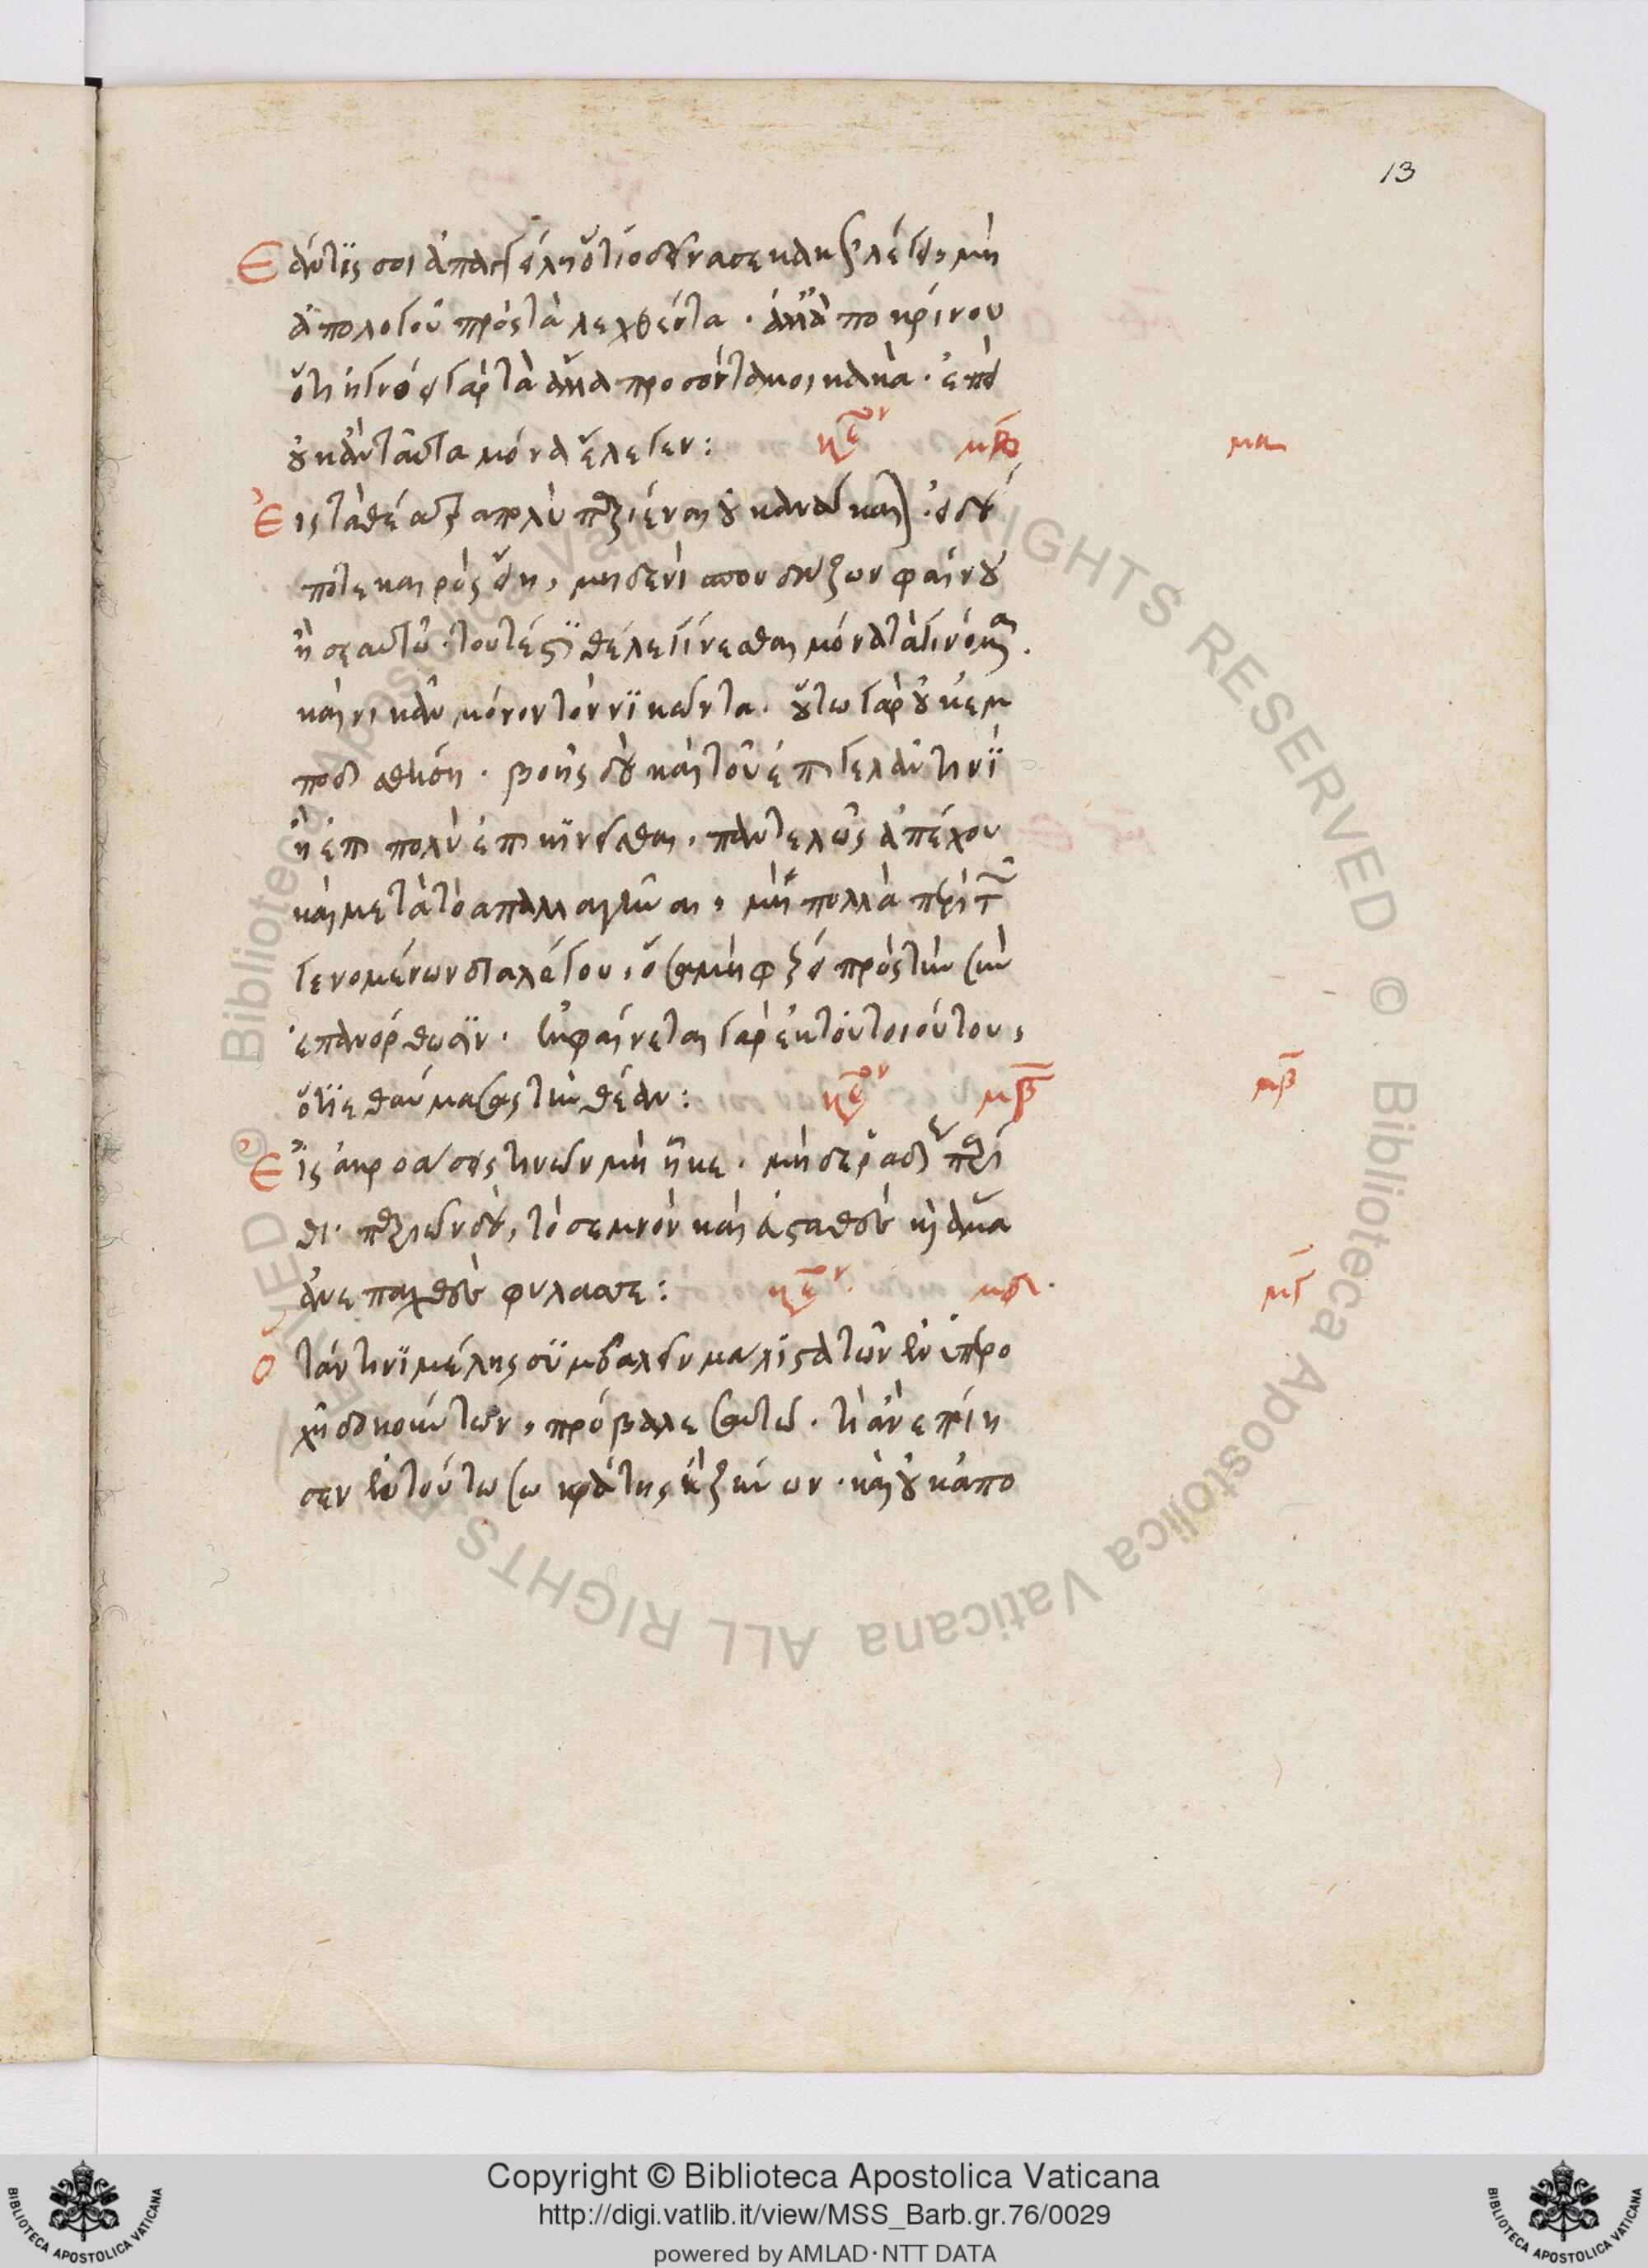 13
Ἐάν τίς σοι ἀπαγγείλῃ ὅτι ὁ δεῖνα σε κακῶς λέγει, μὴ
ἀπολογοῦ πρὸς τὰ λεχθέντα · ἀλλ' ἀποκρίνου
ὅτι ἠγνόει γὰρ τὰ ἄλλα προσόντα μοι κακά · ἐπεὶ
οὐκ ἂν ταῦτα μόνα ἔλεγεν :
μα
Εἰς τὰ θέατρα πολὺ παριέναι οὐκ ἀναγκαῖον · εἰ δέ
ποτε καιρὸς εἴη, μηδενὶ σπουδάζων φαίνου
ἢ σεαυτῷ · τουτέστι θέλε γίνεσθαι μόνα τὰ γινόμενα ·
καὶ νικᾶν μόνον τὸν νικῶντα · οὕτω γὰρ οὐκ ἐμ
ποδισθήσῃ · βοῆς δὲ καὶ τοῦ ἐπιγελᾶν τινὶ
ἢ ἐπὶ πολὺ ἐπικινεῖσθαι, παντελῶς ἀπέχου
καὶ μετὰ τὸ ἀπαλλαγῆναι, μὴ πολλὰ περὶ τῶν
γενομένων διαλέγου, ὅσα μὴ φέρει πρὸς τὴν σὴν
ἐπανόρθωσιν · ἐμφαίνεται γὰρ ἐκ τοῦ τοιούτου,
ὅτι ἐθαύμασας τὴν θέαν :
μβ
μβ
Εἰς ἀκροάσεις τινῶν μὴ ἧκε · μὴ δὲ ῥᾳδίως πάρι
θι · παριὼν δὲ, τὸ σεμνὸν καὶ εὐσταθὲς καὶ ἅμα
ἀνεπαχθὲς φύλασσε :
μδ ·
μγ
Ὅταν τινὶ μέλλῃς συμβαλεῖν μάλιστα τῶν ἐν ὑπερο
χῇ δοκούντων, πρόβαλε σαυτῷ · τί ἂν ἐποίη
σεν ἐν τούτῳ σωκράτης ἢ ζήνων · καὶ οὐκ ἀπο
Copyright © Biblioteca Apostolica Vaticana
http://digi.vatlib.it/view/MSS_Barb.gr.76/0029
powered by AMLAD · NTT DATA
BIBLIOTECA APOSTOLICA VATICANA
BIBLIOTECA APOSTOLICA VATICANA
© Biblioteca Apostolica Vaticana ALL RIGHTS RESERVED © Biblioteca Apostolica Vaticana ALL RIGHTS RESERVED